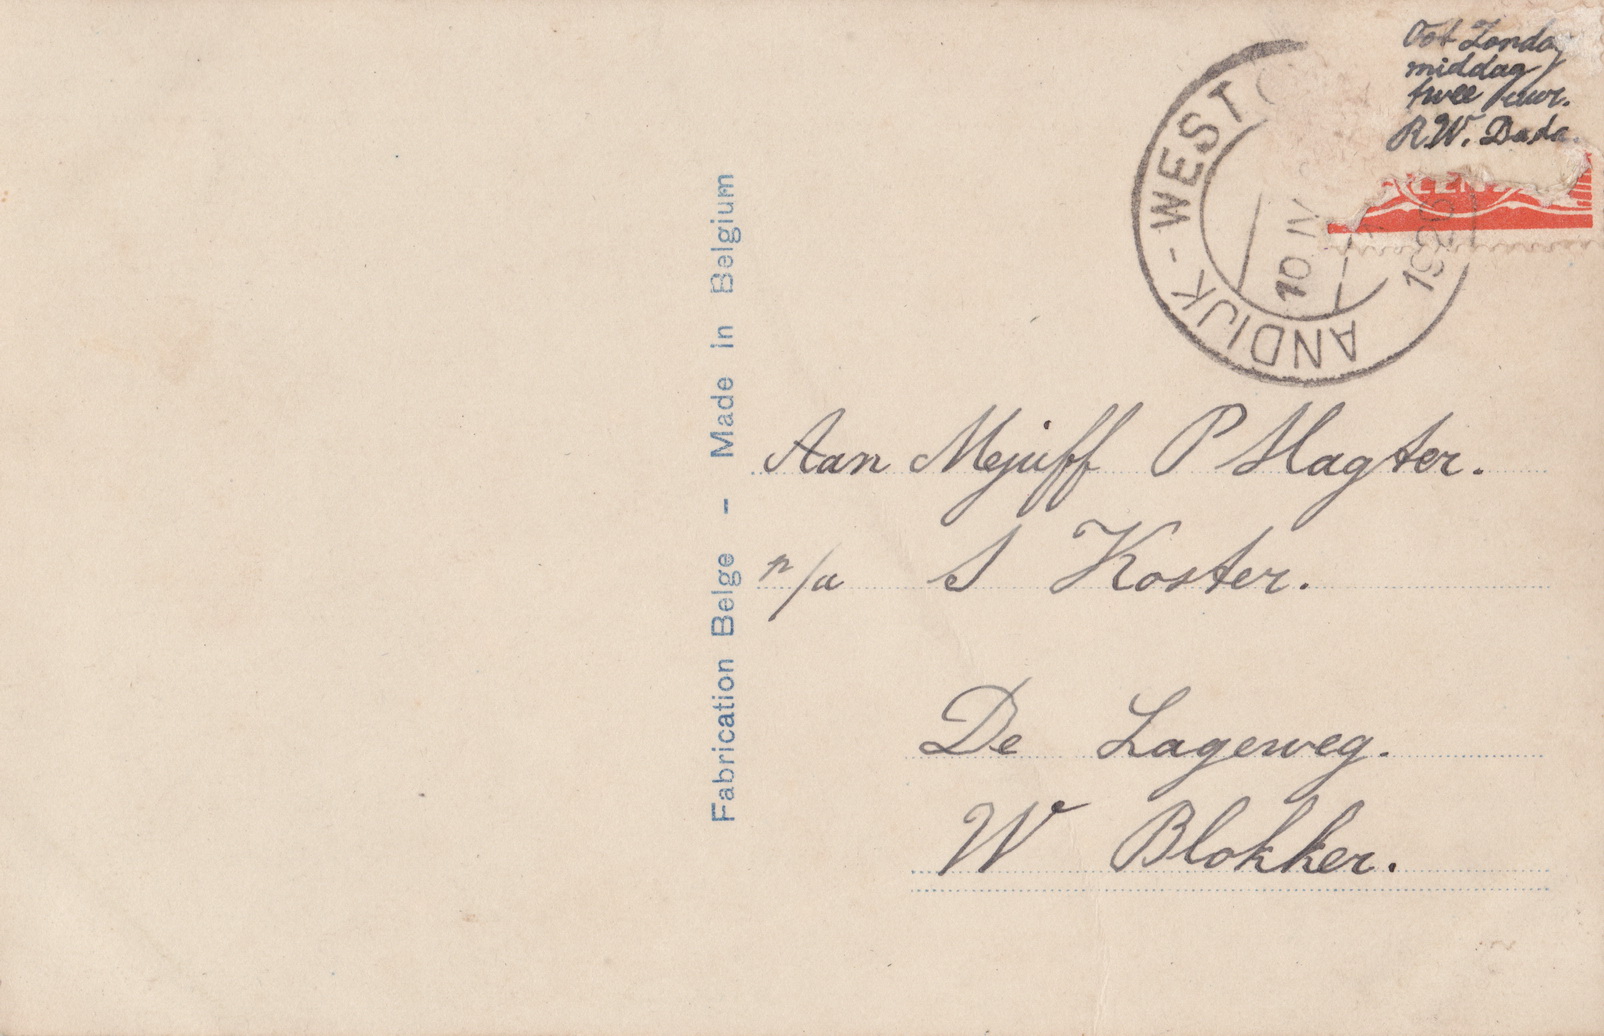 Tot Zondag
middag
twee uur.
R.W. Dada.
ANDIJK - WEST
10 IV
Fabrication Belge - Made in Belgium
Aan Mejuff P Slagter.
p/a S Koster.
De Lageweg.
W Blokker.